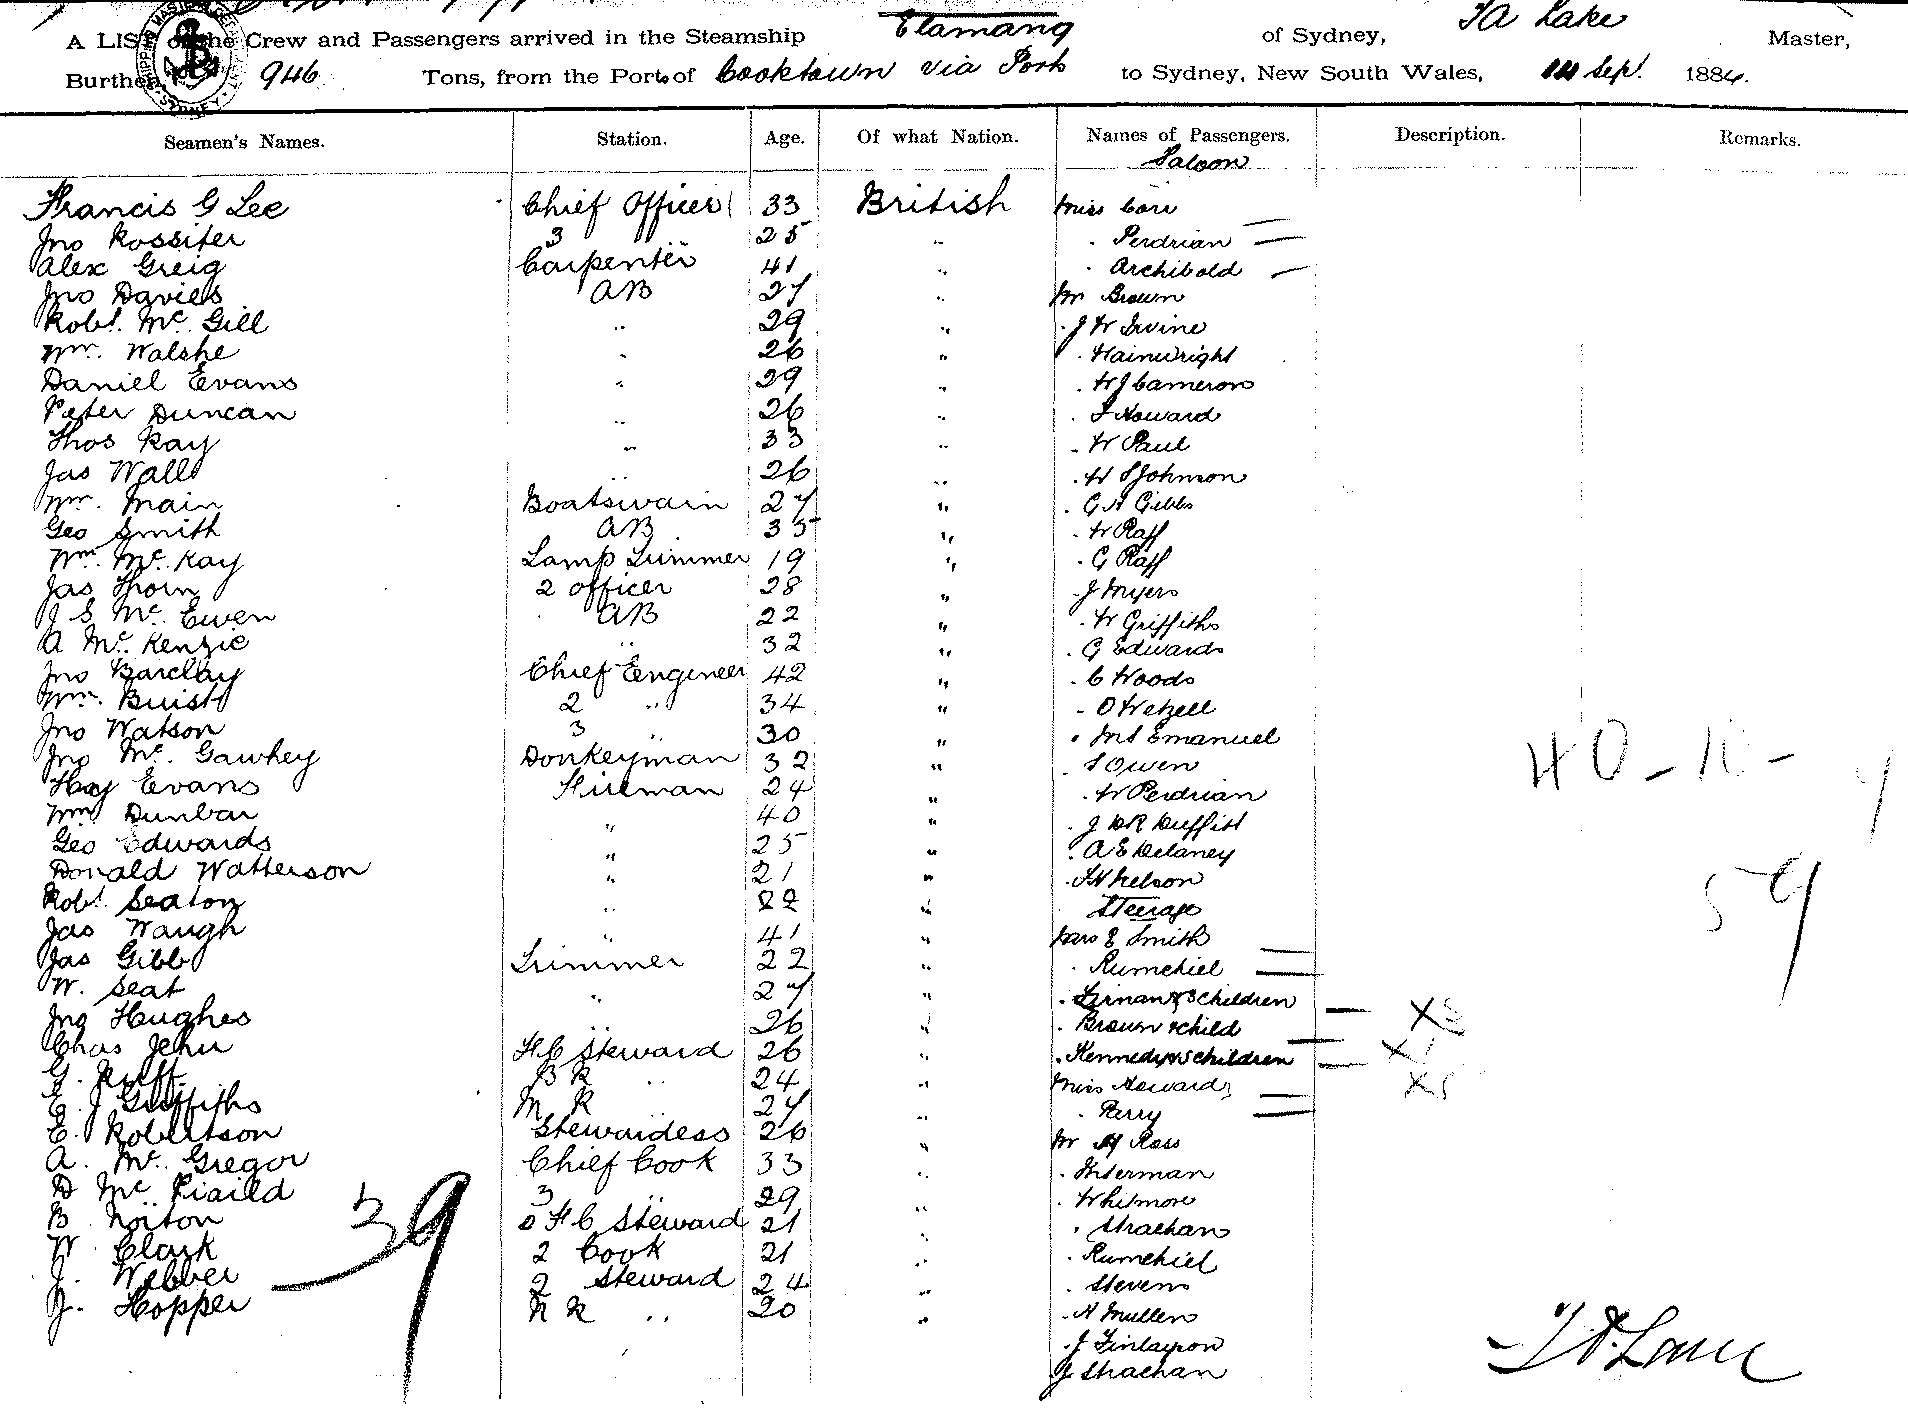 A LIST of the Crew and Passengers arrived in the Steamship Elamang of Sydney, T A Lake Master,
Burthen 946 Tons, from the Ports of Cooktown via Ports to Sydney, New South Wales, Sept. 1884.
Seamen's Names. Station. Age. Of what Nation. Names of Passengers. Description. Remarks.
Saloon
Francis G Lee Chief Officer 33 British Miss Cori
Jno Rossiter 3 25 " " Perdrian
Alex Greig Carpenter 41 " " Archibold
Jno Davies AB 27 " Mr Brown
Robt. Mc Gill " 29 " " J W Irvine
Wm. Walshe " 26 " " Wainwright
Daniel Evans " 29 " " W J Cameron
Peter Duncan " 26 " " Howard
Thos Kay " 33 " " W Paul
Jas Wall " 26 " " Johnson
Wm. Main Boatswain 27 " " G A Gibbs
Geo Smith AB 35 " " W Raff
Wm. Mc Kay Lamp Trimmer 19 " " G Raff
Jas Thorn 2 officer 28 " " J Myers
J S Mc Ewen AB 22 " " W Griffiths
A Mc Kenzie " 32 " " G Edwards
Jno Barclay Chief Engineer 42 " " C Woods
Wm. Buist 2 " 34 " " O Wetzell
Jno Watson 3 " 30 " " Emanuel
Jno Mc Gawhey Donkeyman 32 " " S Owen
Hay Evans Fireman 24 " " W Perdrian
Wm Dunbar " 40 " " J
Geo Edwards " 25 " " A E Delaney
Donald Watterson " 21 " " Nelson
Robt Seaton " 22 " Steerage
Jas Waugh " 41 " Mrs E Smith
Jas Gibb Trimmer 22 " " Rumchiel
W. Seat " 27 " " & 3 children
Jno Hughes " 26 " " Brown & child
Chas Jehu F C Steward 26 " " Kennedy & 5 children
G. B R " 24 " Miss Howard
E. J Griffiths M R " 27 " " Perry
E. Robertson Stewardess 26 " Mr Ross
A. Mc Gregor Chief Cook 33 "
D Mc 3 " 29 " " Whitmore
B Norton 2 F C Steward 21 " " Strachan
W Clark 2 Cook 21 " " Rumchiel
J. Webber 2 Steward 24 " " Stevens
J. Hopper " 20 " " A Mullen
" J Finlayson
J Strachan
39
59